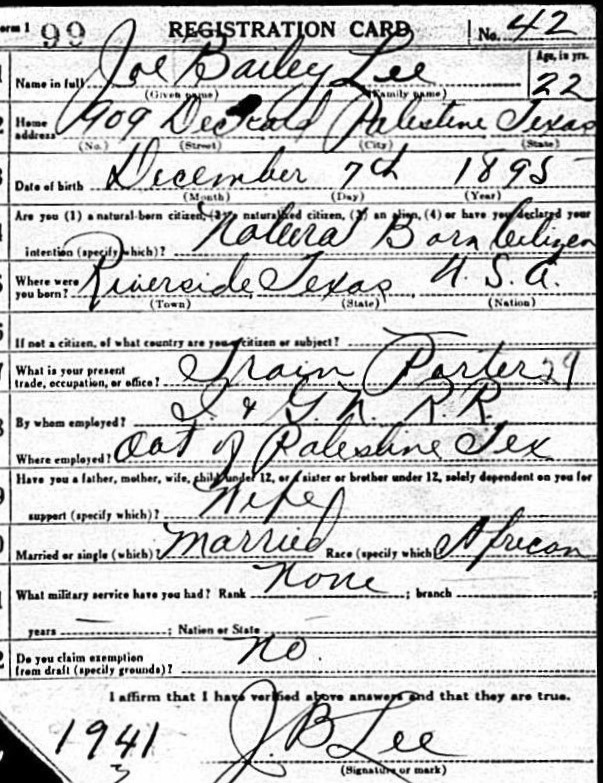 orm 1 99 REGISTRATION CARD No. 42
Name in full Joe Bailey Lee Age, in yrs. 22
(Given name) (Family name)
Home address 909 Palestine Texas
(No.) (Street) (City) (State)
Date of birth December 7th 1895
(Month) (Day) (Year)
Are you (1) a natural-born citizen, (2) a naturalized citizen, (3) an alien, (4) or have you declared your
intention (specify which)? Natural Born Citizen
Where were you born? Riverside Texas U. S. A.
(Town) (State) (Nation)
If not a citizen, of what country are you a citizen or subject?
What is your present trade, occupation, or office? Train Porter 29
By whom employed? I. & G. N. R. R.
Where employed? Out of Palestine Tex
Have you a father, mother, wife, child under 12, or a sister or brother under 12, solely dependent on you for
support (specify which)? Wife
Married or single (which)? Married Race (specify which) African
What military service have you had? Rank None ; branch ;
years ; Nation or State
Do you claim exemption from draft (specify grounds)? No.
I affirm that I have verified above answers and that they are true.
1941 J. B Lee
3 (Signature or mark)